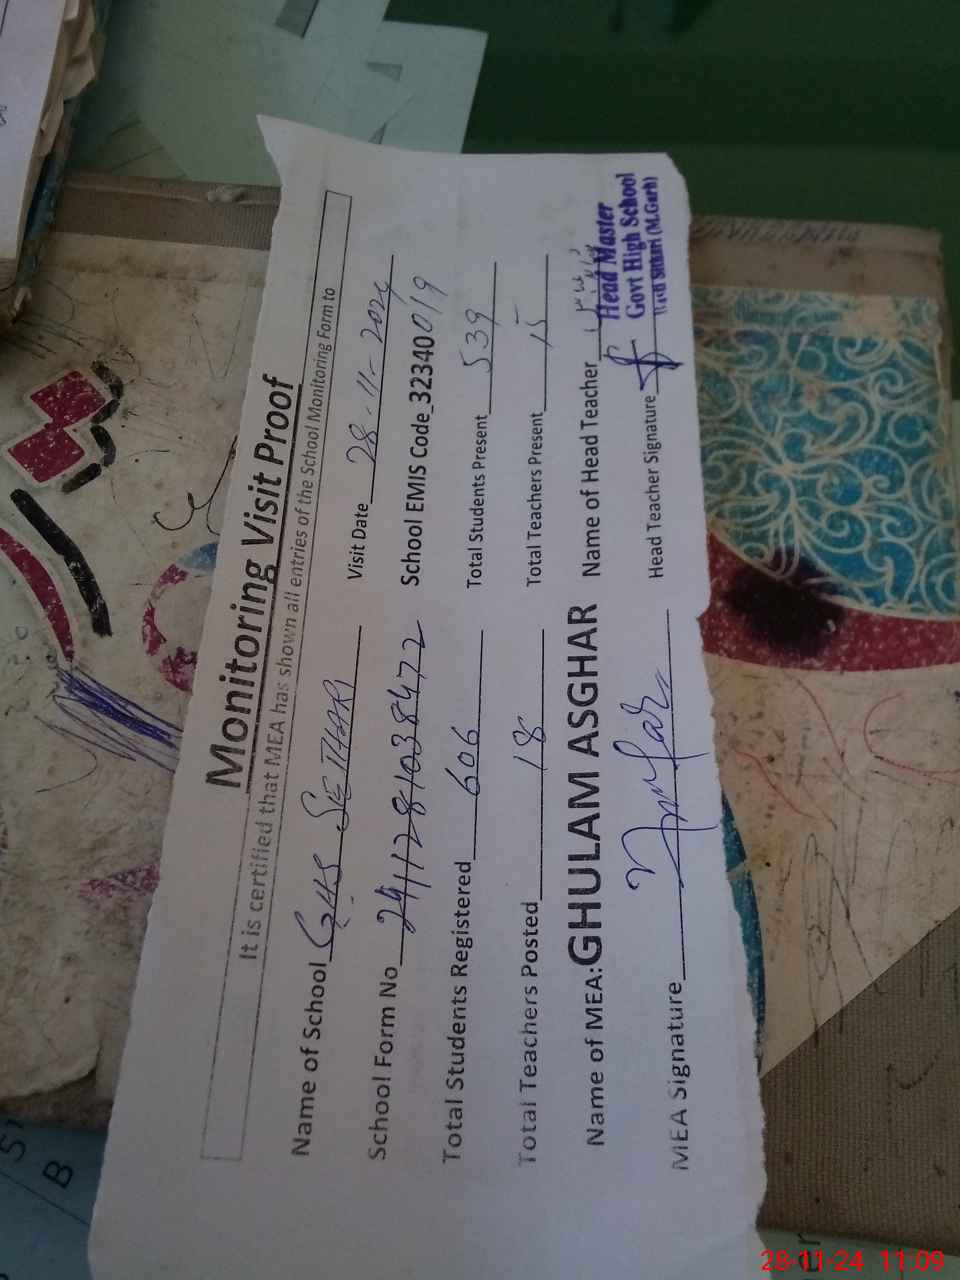 Monitoring Visit Proof
It is certified that MEA has shown all entries of the School Monitoring Form to
Name of School GHS SIETHARI Visit Date 28-11-2024
School Form No 2411281038472 School EMIS Code_32340019
Total Students Registered 606 Total Students Present 539
Total Teachers Posted 18 Total Teachers Present 15
Name of MEA: GHULAM ASGHAR Name of Head Teacher
MEA Signature Head Teacher Signature
Head Master
Govt High School
(M.Garh)
5
B
28-11-24 11:09